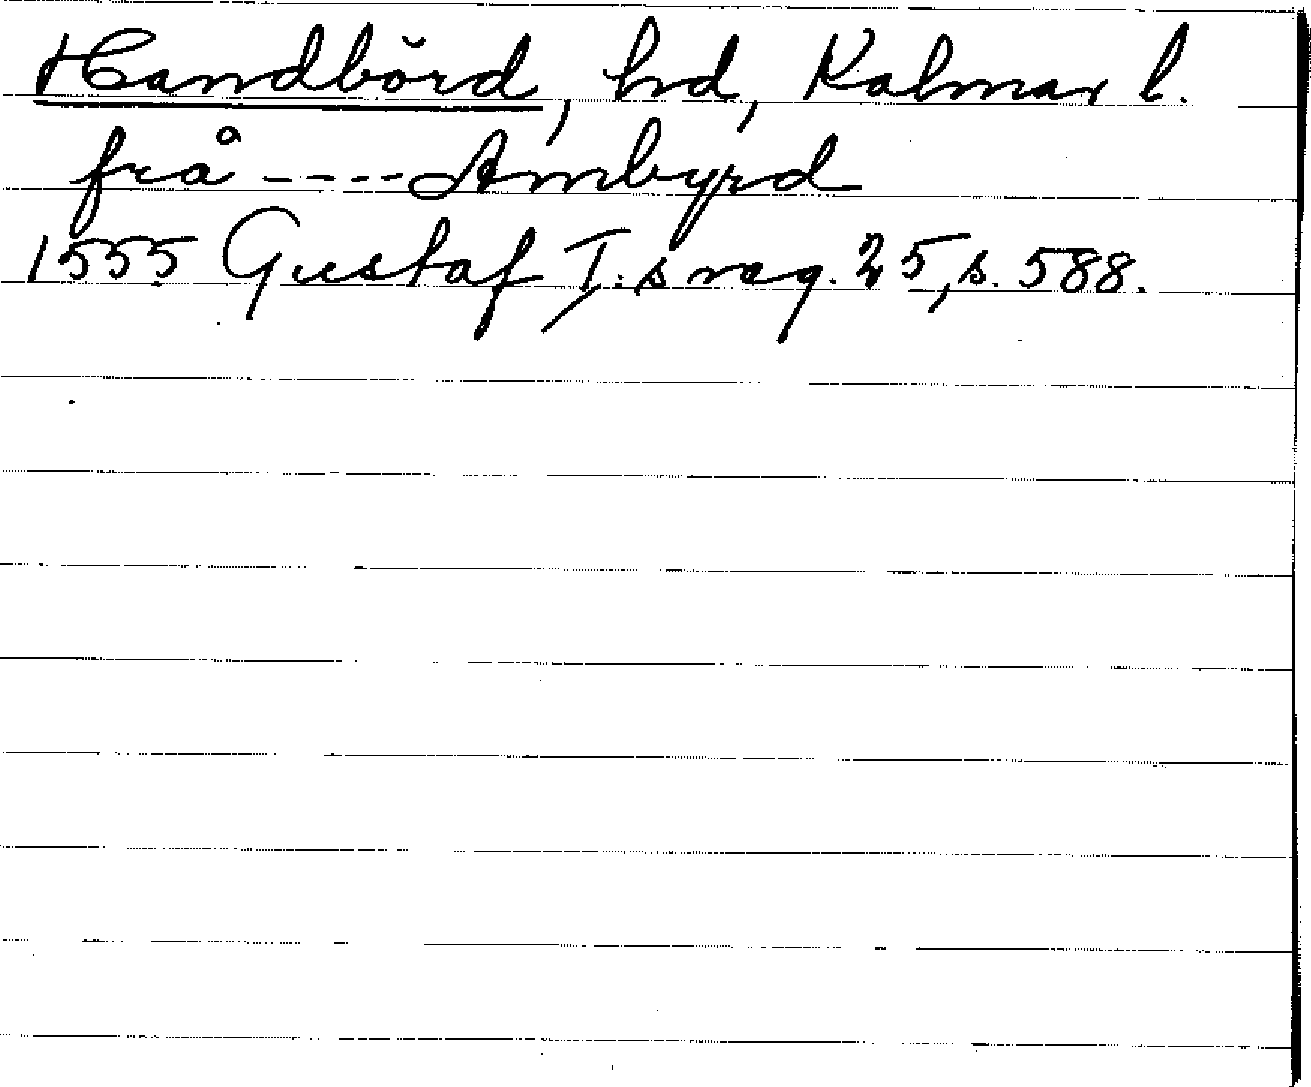 Handbörd, hd, Kalmar l.
frå ---- Ambyrd
1555 Gustaf I:s reg. 25, s. 588.